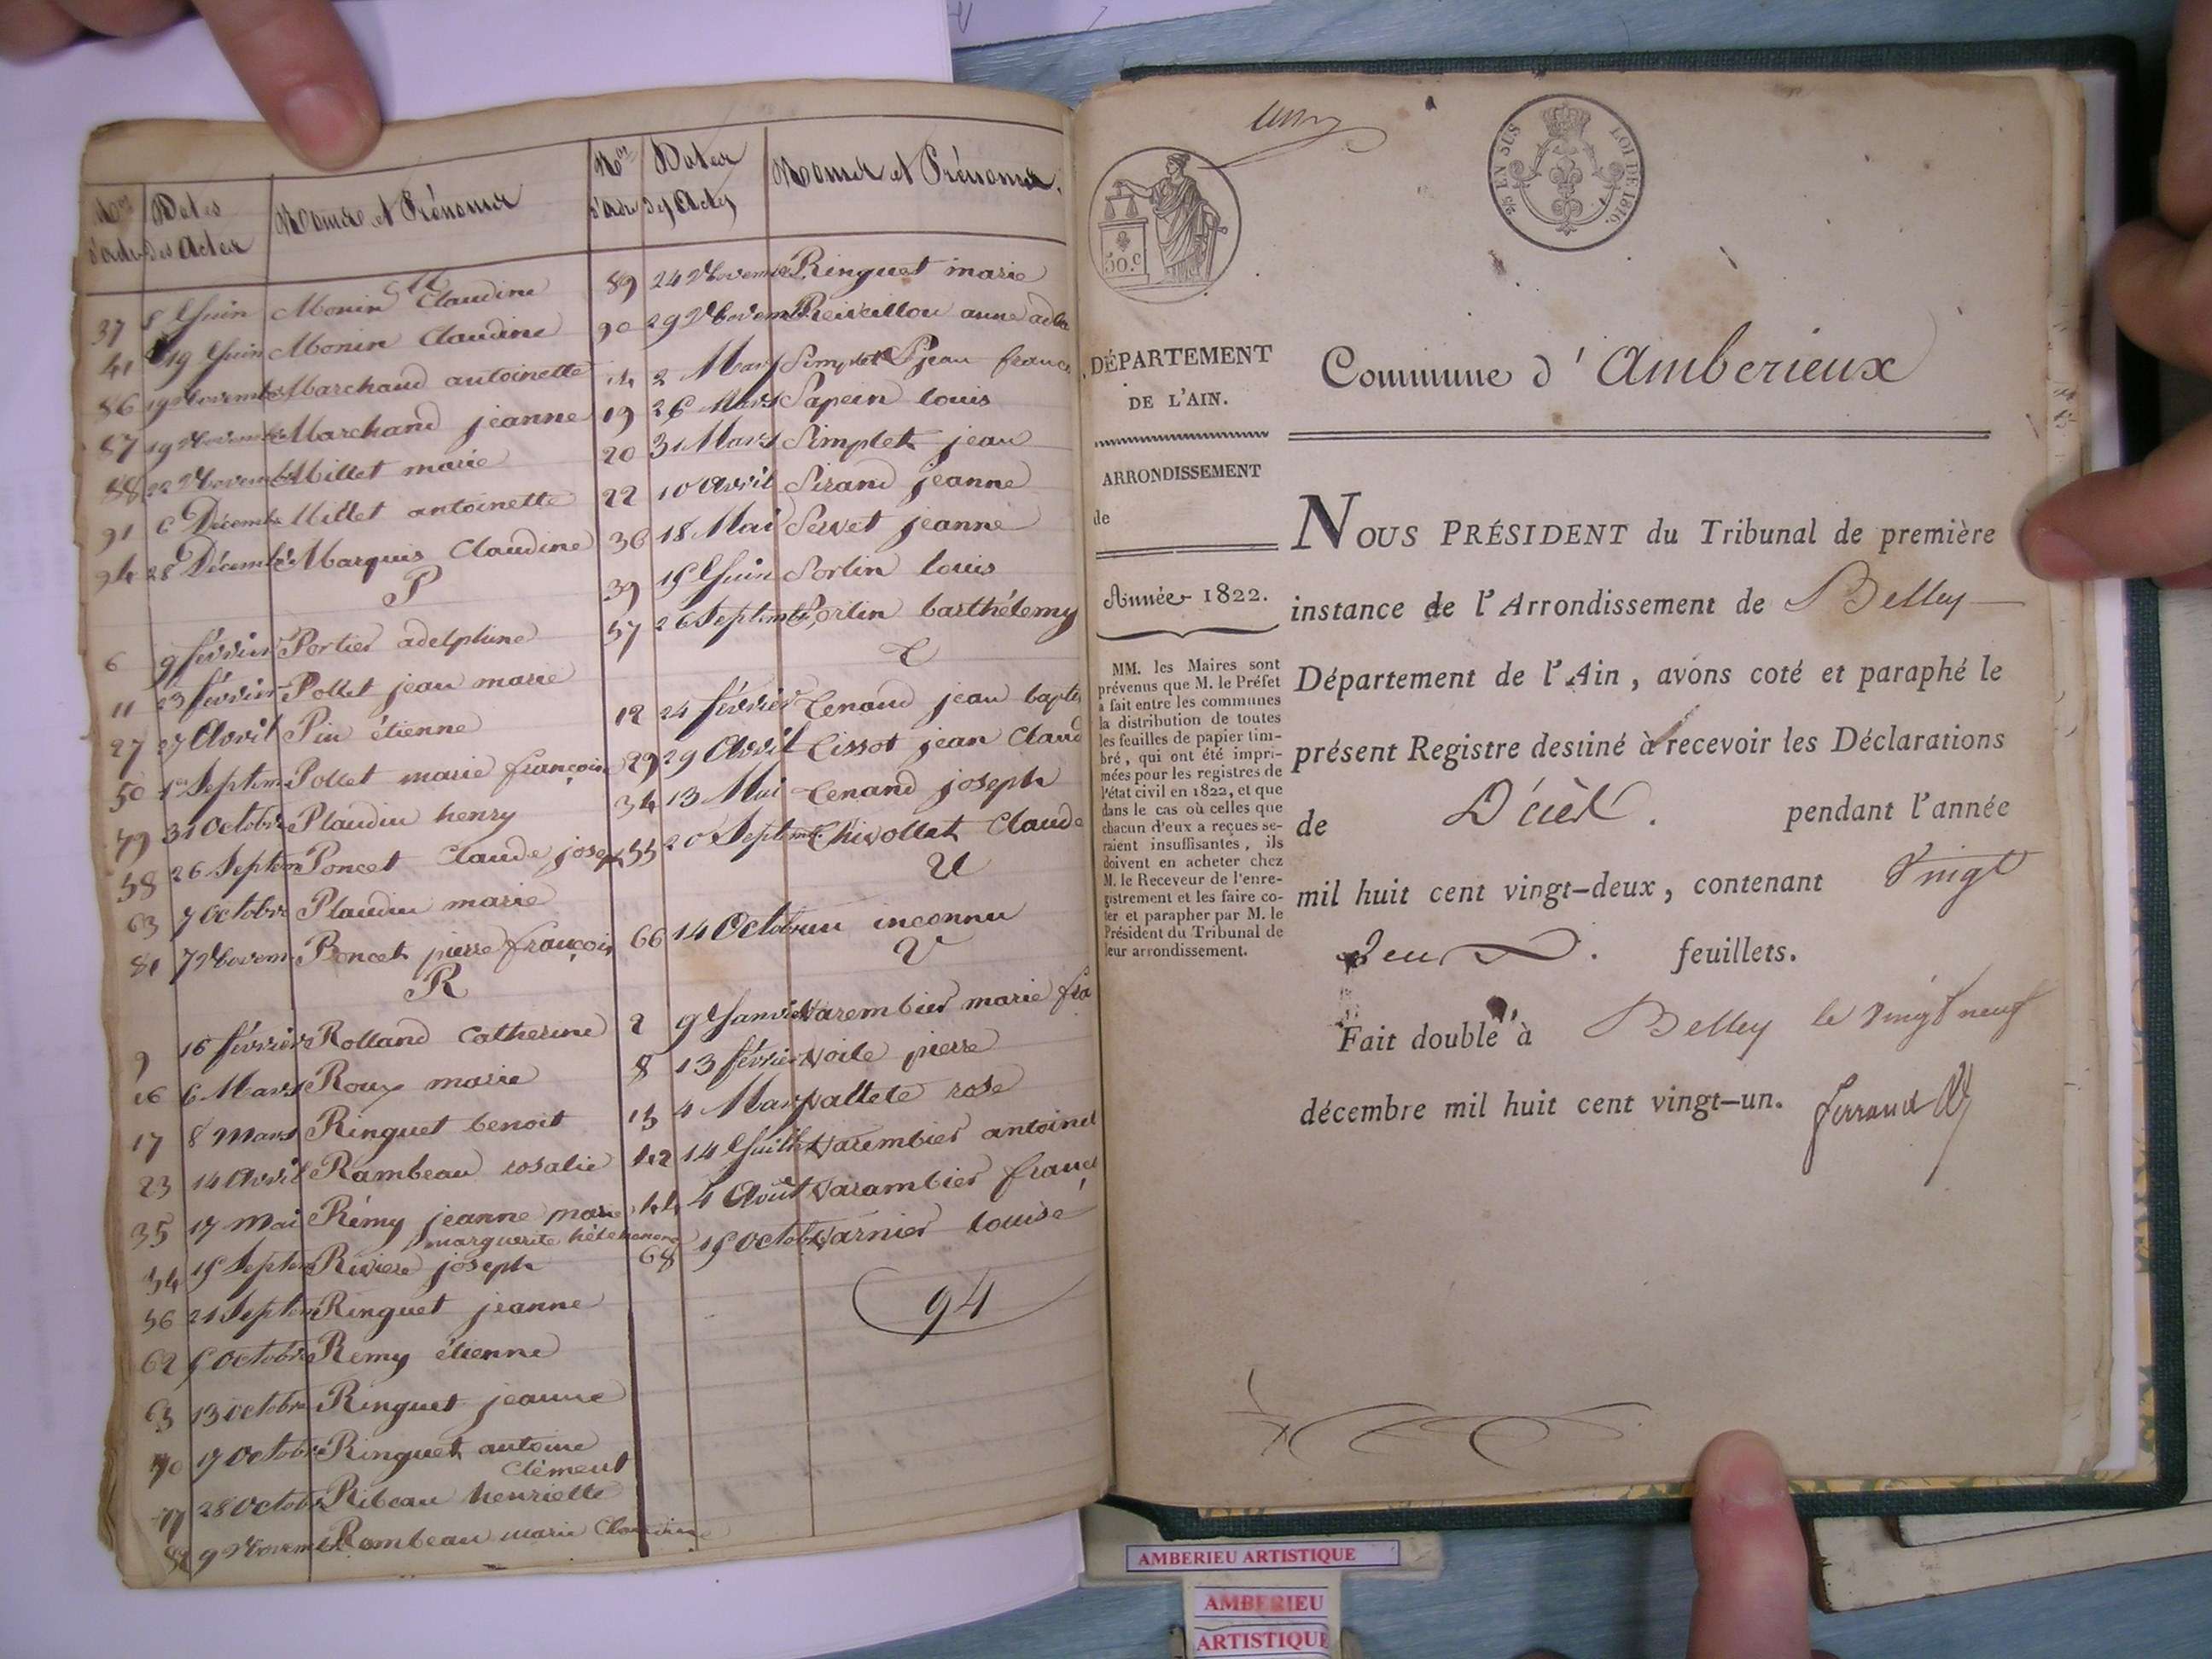 Nos d'ordre | Dates des Actes | Noms et Prénoms
M
37 8 Juin Monin Claudine
41 19 Juin Monin Claudine
86 19 Novembre Marchand antoinette
87 19 Novembre Marchand jeanne
88 22 Novembre Millet marie
91 6 Décembre Millet antoinette
94 28 Décembre Marquis Claudine
P
6 9 février Portier adelphine
11 23 février Pollet jean marie
27 27 Avril Pin étienne
50 1er Septem Pollet marie françoise
79 31 Octobre Plaudin henry
58 26 Septem Poncet Claude josep
63 7 Octobre Plaudin marie
81 7 Novem Poncet pierre françois
R
9 16 février Rolland Catherine
16 6 Mars Roux marie
17 8 Mars Ringuet benoit
23 14 Avril Rambeau rosalie
35 17 Mai Rémy jeanne marie
marguerite
54 15 Septem Riviere joseph
56 21 Septem Ringuet jeanne
62 5 Octobre Remy étienne
65 13 octobre Ringuet jeanne
70 17 Octobre Ringuet antoine
Clément
77 28 Octobre Ribeau henriette
82 9 Novembre Rambeau marie Claudine
Nos d'ordre | Dates des Actes | Noms et Prénoms.
89 24 Novembre Ringuet marie
90 29 Novembre Reveillou anne
14 2 Mars Simplet jean franc
19 26 Mars Sapein louis
20 31 Mars Simplet jean
22 10 Avril Sirand jeanne
36 18 Mai Servet jeanne
39 15 Juin Sorlin louis
57 26 Septembre Sorlin barthélemy
T
12 24 février Tenand jean baptis
29 29 Avril Tissot jean Claud
34 13 Mai Tenand joseph
55 20 Septem Thivollet Claude
U
66 14 Octobre un inconnu
V
2 9 Janvier Varembier marie fra
8 13 février Voile pierre
15 4 Mars Vallete rose
42 14 Juillet Varembier antoinet
44 4 Août Varambier franç
68 15 Octobre Varnier louise
94
50.c
C/es EN SUS
LOI DE 1816.
DÉPARTEMENT
DE L'AIN.
ARRONDISSEMENT
de
Année 1822.
MM. les Maires sont
prévenus que M. le Préfet
a fait entre les communes
la distribution de toutes
les feuilles de papier tim-
bré, qui ont été impri-
mées pour les registres de
l'état civil en 1822, et que
dans le cas où celles que
chacun d'eux a reçues se-
raient insuffisantes, ils
doivent en acheter chez
M. le Receveur de l'enre-
gistrement et les faire co-
ter et parapher par M. le
Président du Tribunal de
leur arrondissement.
Commune d'Amberieux
NOUS PRÉSIDENT du Tribunal de première
instance de l'Arrondissement de Belley
Département de l'Ain, avons coté et paraphé le
présent Registre destiné à recevoir les Déclarations
de Décès. pendant l'année
mil huit cent vingt-deux, contenant Vingt
Deux. feuillets.
Fait double à Belley le vingt neuf
décembre mil huit cent vingt-un. ferrand
AMBERIEU ARTISTIQUE
AMBERIEU
ARTISTIQUE